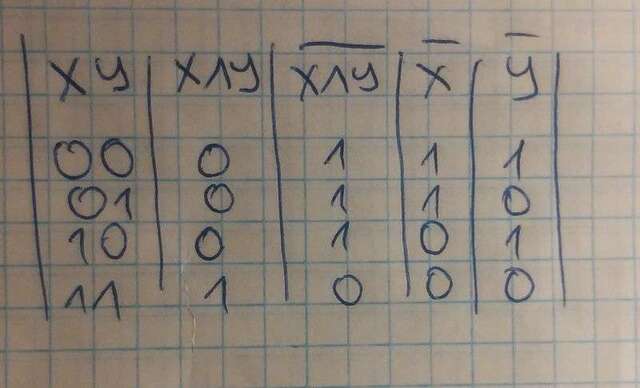 | x y | x∧y | x̅∧̅y̅ | x̅ | y̅ |
| 00 | 0 | 1 | 1 | 1 |
| 01 | 0 | 1 | 1 | 0 |
| 10 | 0 | 1 | 0 | 1 |
| 11 | 1 | 0 | 0 | 0 |